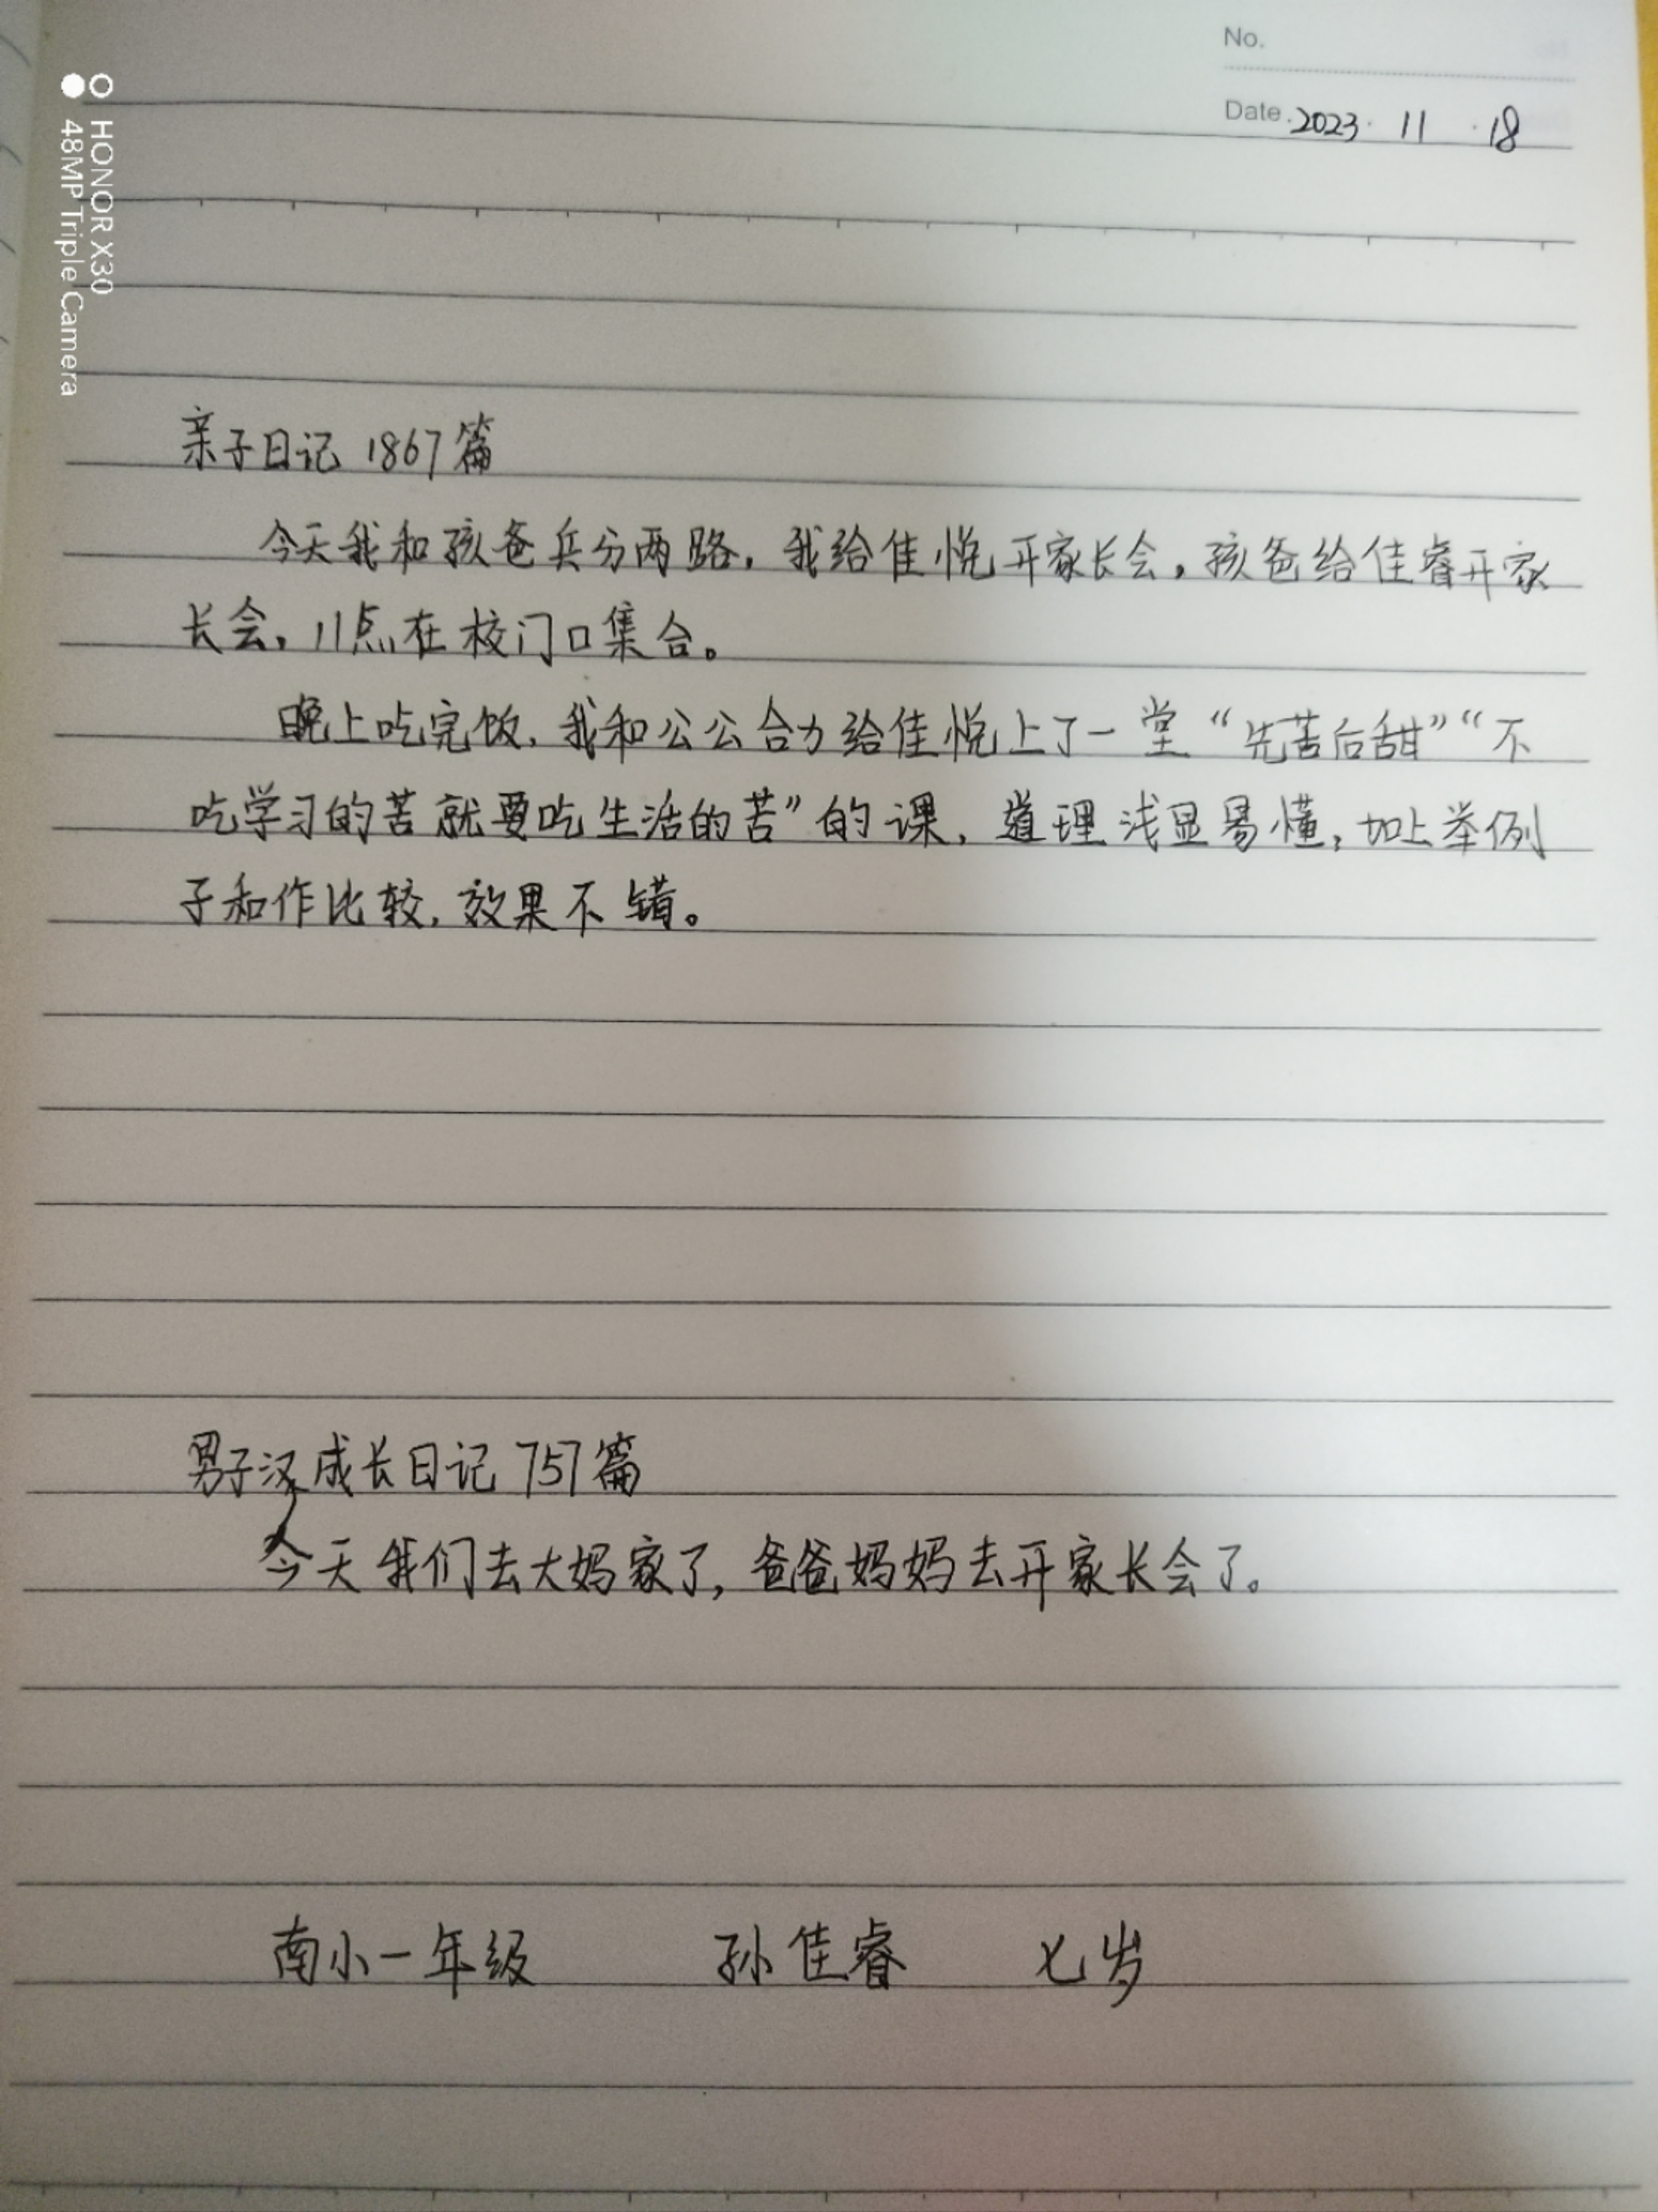 No.
Date. 2023. 11 .18
HONOR X30
48MP Triple Camera
亲子日记 1867篇
今天我和孩爸兵分两路,我给佳悦开家长会,孩爸给佳睿开家
长会,11点在校门口集合。
晚上吃完饭,我和公公合力给佳悦上了一堂“先苦后甜”“不
吃学习的苦就要吃生活的苦”的课,道理浅显易懂,加上举例
子和作比较,效果不错。
男子汉成长日记 757篇
今天我们去大妈家了,爸爸妈妈去开家长会了。
南小一年级 孙佳睿 七岁